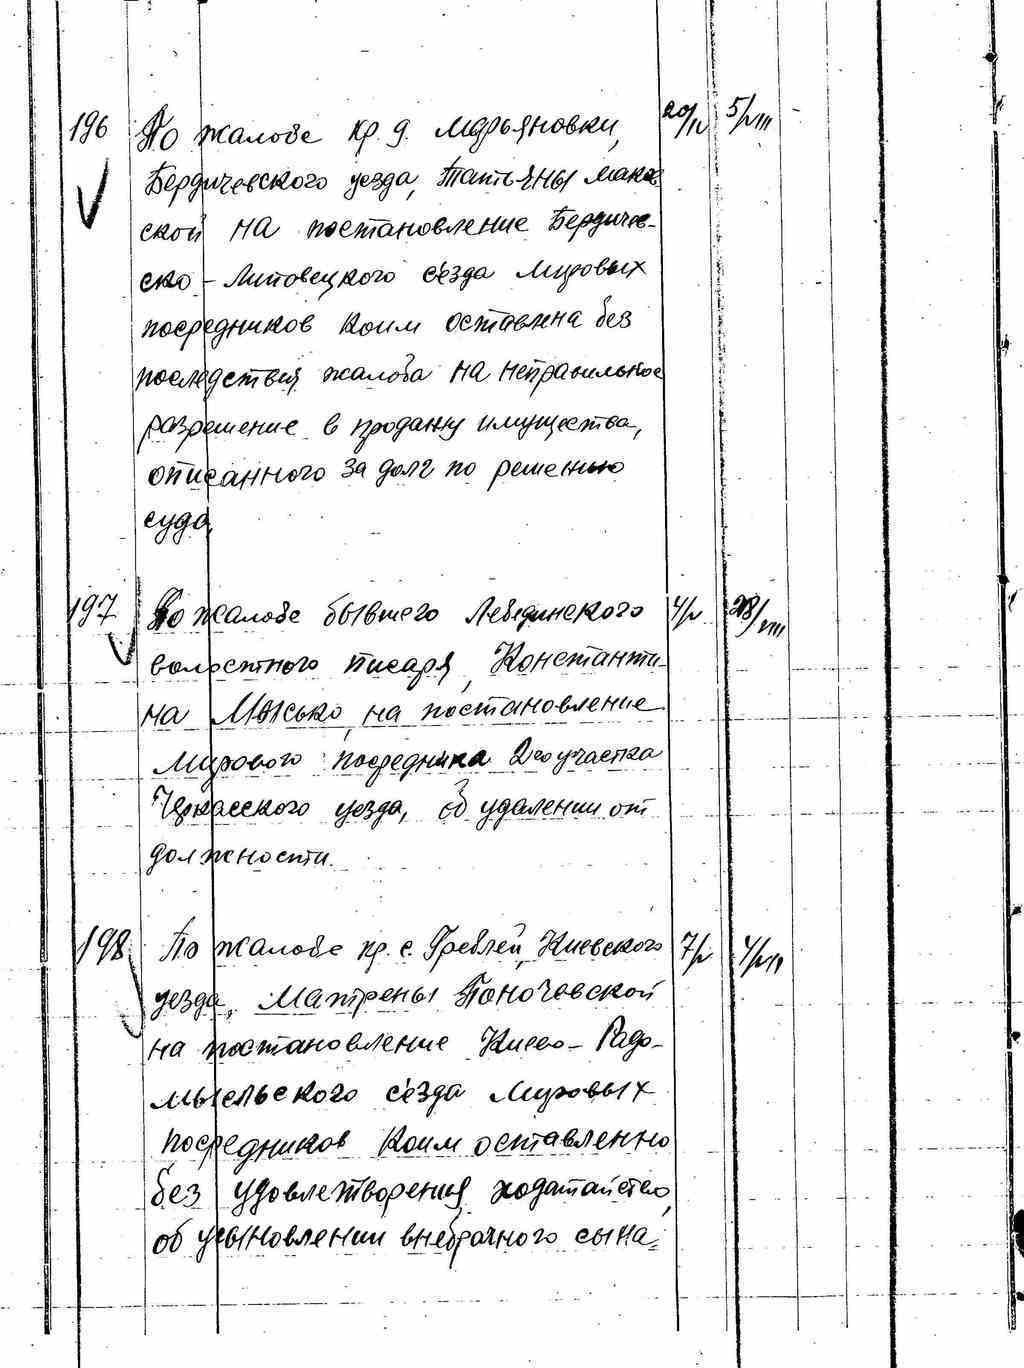 196 По жалобе кр. д. Марьяновки, 20/IV 5/VIII
Бердичевского уезда, Татьяны Маков
ской на постановление Бердичев-
ско-Липовецкого съезда мировых
посредников коим оставлена без
последствия жалоба на неправильное
разрешение в продажу имущества,
описанного за долг по решению
суда,
197 По жалобе бывшего Лебединского 4/V 28/VIII
волостного писаря, Константи-
на Мысько, на постановление
Мирового посредника 2го участка
Черкасского уезда, об удалении от
должности.
198 По жалобе кр. с. Греблей, Киевского 7/V
уезда, Матрены Паночевской
на постановление Киево-Радо-
мысльского съезда Мировых
посредников коим оставленно
без удовлетворения, ходатайство,
об усыновлении внебрачного сына.